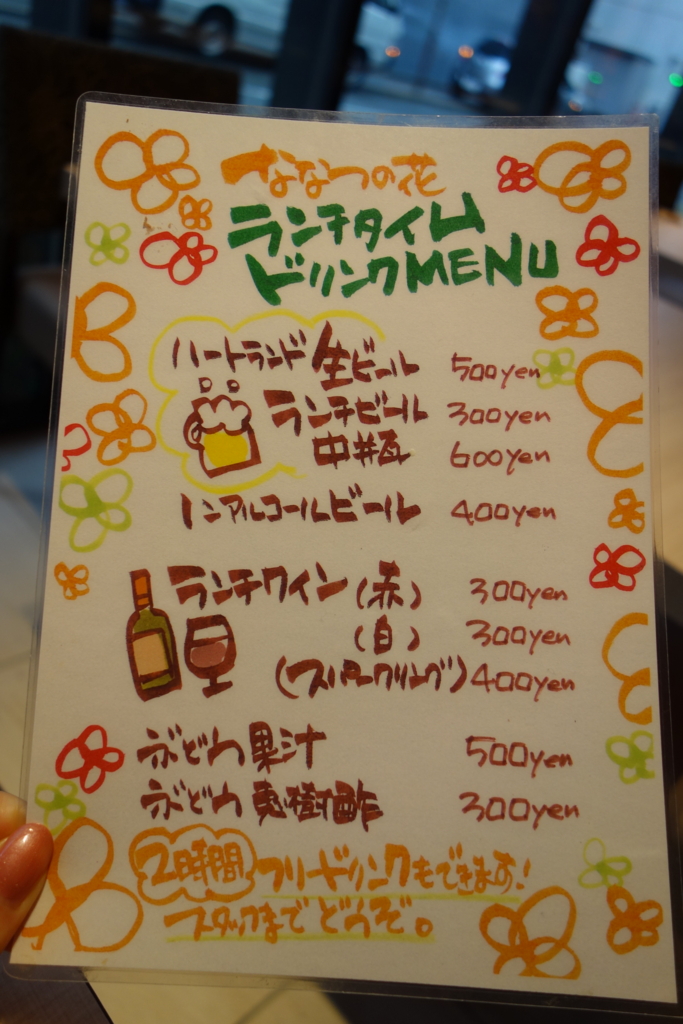 ななつの花
ランチタイム
ドリンクMENU
ハートランド 生ビール 500yen
ランチビール 300yen
中井瓦 600yen
ノンアルコールビール 400yen
ランチワイン (赤) 300yen
(白) 300yen
(スパークリング) 400yen
ぶどう果汁 500yen
ぶどう果樹酢 300yen
2時間 フリードリンクもできます!
スタッフまで どうぞ。